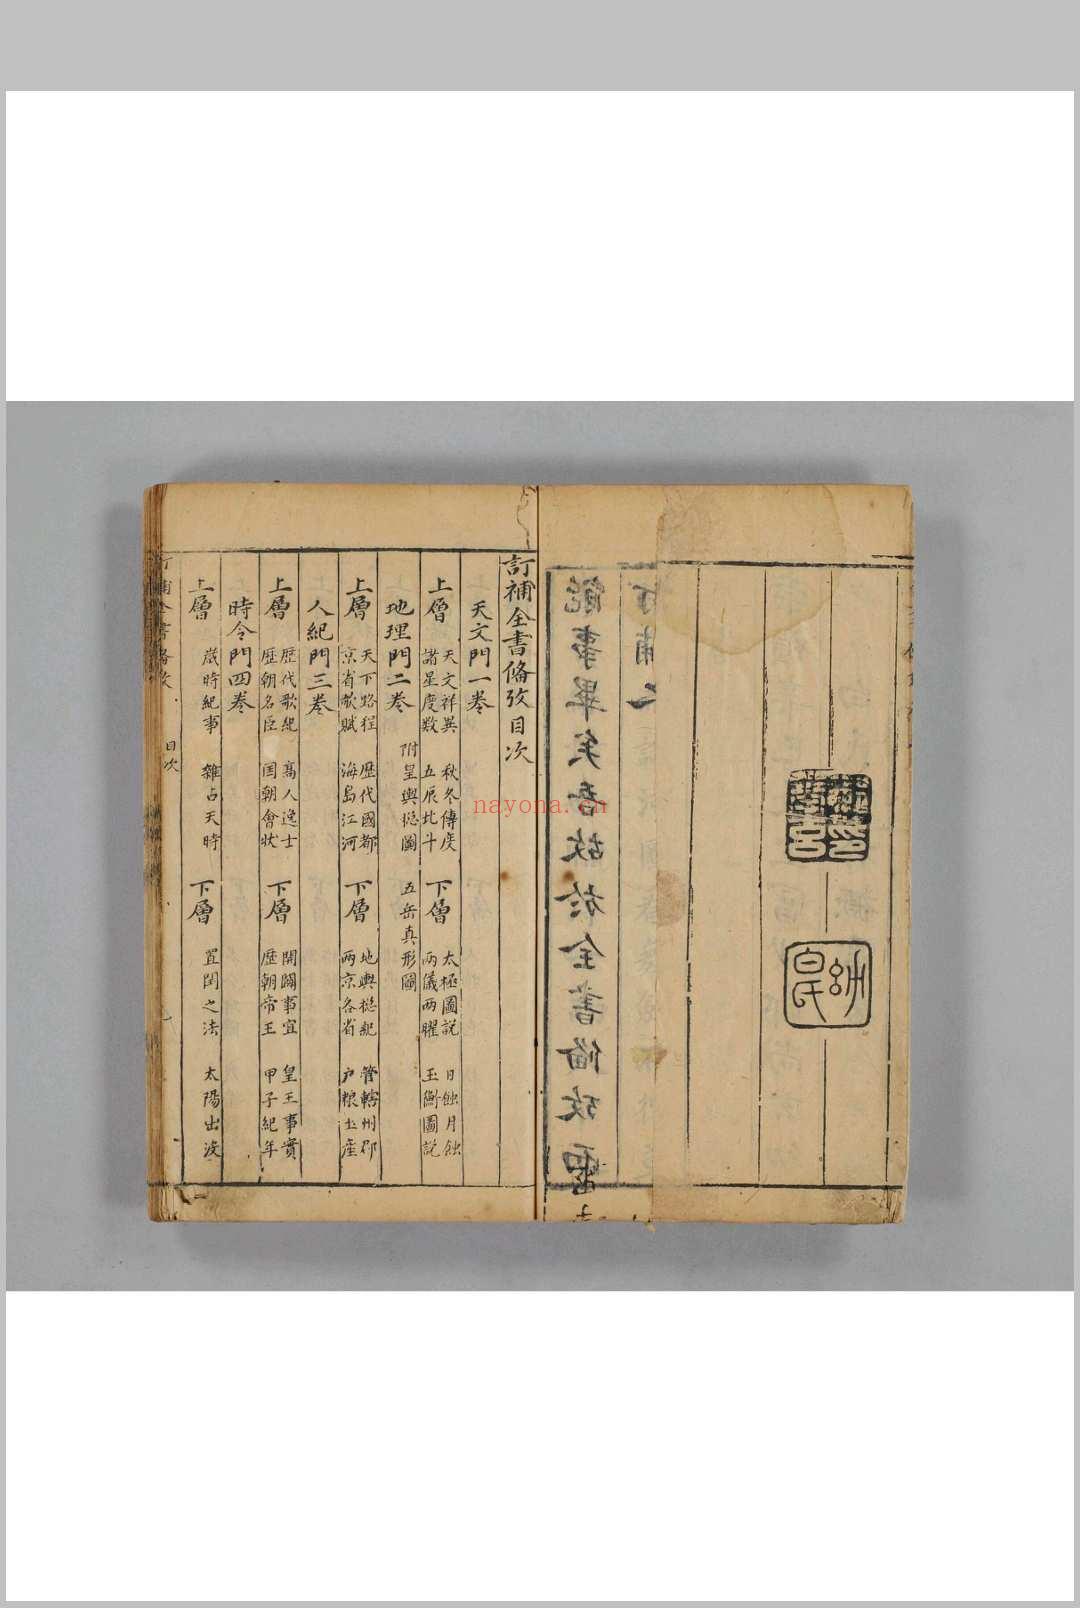 訂補全書俻攷目次
天文門一卷
上層 天文祥異 秋冬傳度 下層 太極圖說 日蝕月蝕
諸星度数 五辰北斗 兩儀兩曜 玉衡圖說
地理門二卷 附皇輿揔圖 五岳真形圖
上層 天下路程 歷代國都 下層 地輿揔紀 管轄州郡
京省歌賦 海島江河 兩京各省 户粮土產
人紀門三卷
上層 歷代歌紀 高人逸士 下層 開闢事宜 皇王事實
歷朝名臣 囯朝會狀 歷朝帝王 甲子紀年
時令門四卷
上層 歳時紀事 雜占天時 下層 置閏之法 太陽出没
訂補全書俻攷 目次
能事畢矣吾故於全書俻攷
nayona.cn